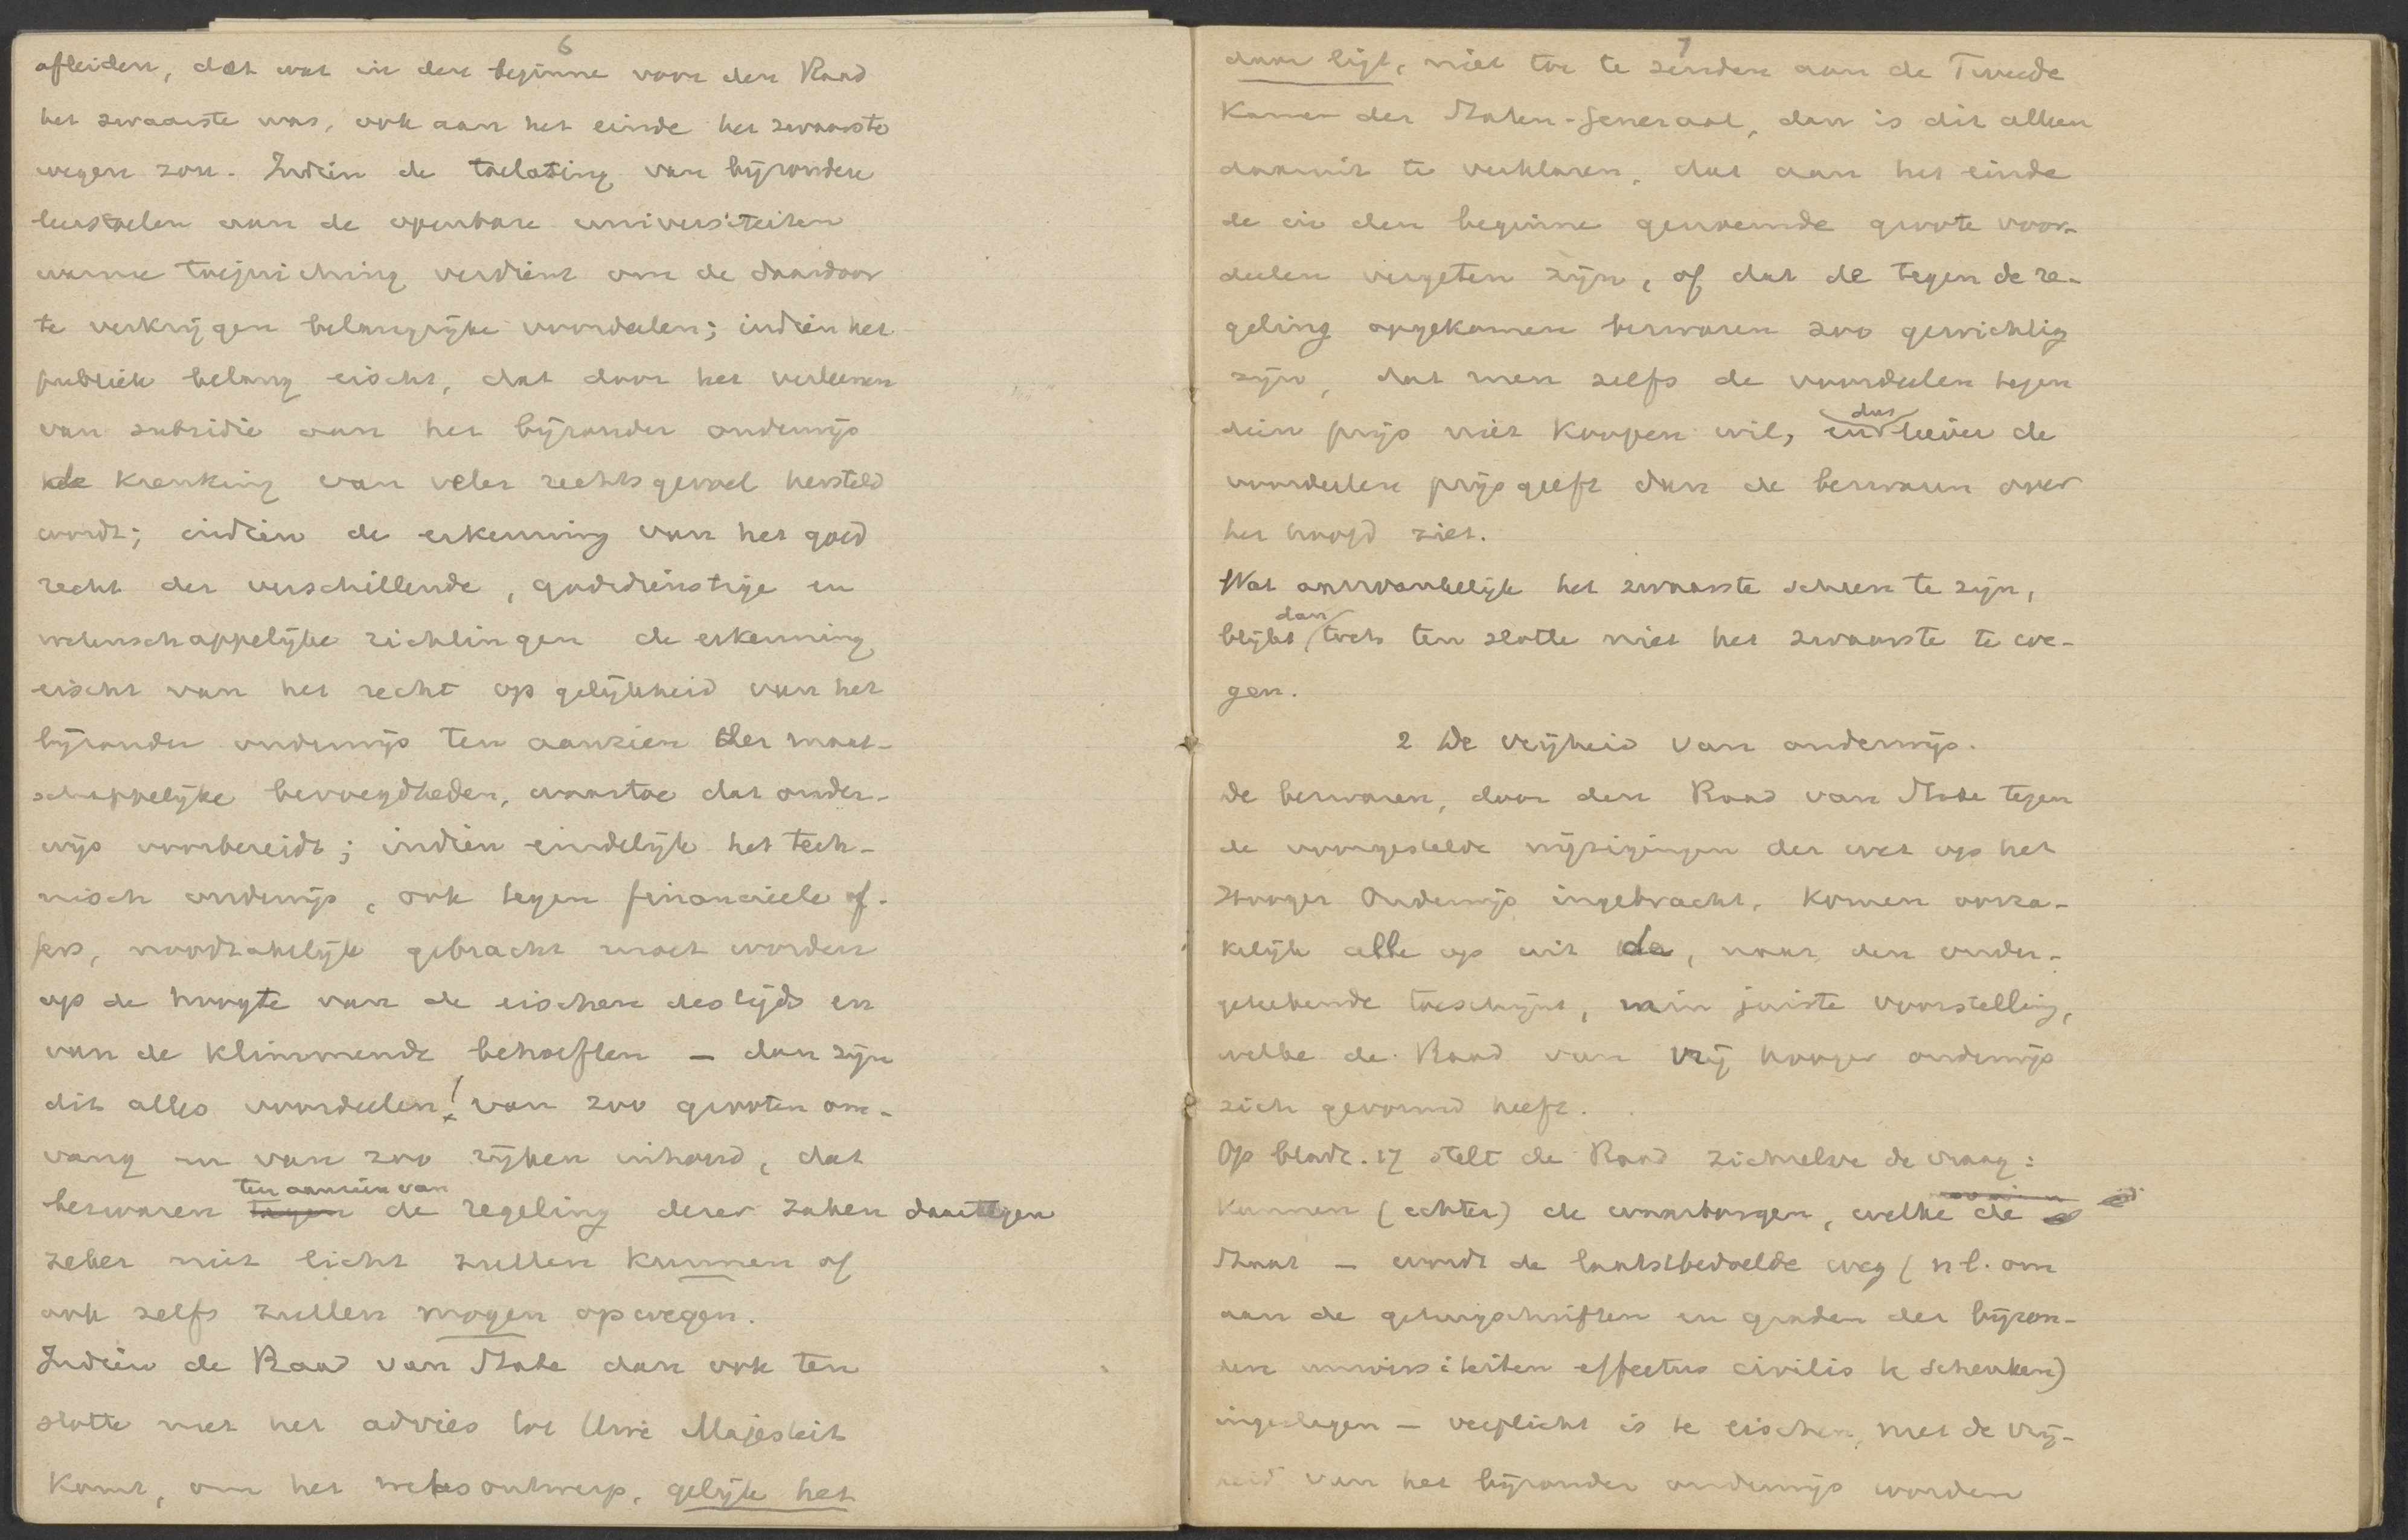 6
afleiden, dat wat in den beginne voor den Raad
het zwaarste was, ook aan het einde het zwaarste
wegen zou. Indien de toelating van bijzondere
leerstoelen aan de openbare universiteiten
warme toejuiching verdient om de daardoor
te verkrijgen belangrijke voordeelen; indien het
publiek belang eischt, dat door het verleenen
van subsidie aan het bijzonder onderwijs
de krenking van veler rechtsgevoel hersteld
wordt; indien de erkenning van het goed
recht der verschillende, godsdienstige en
wetenschappelijke richtingen de erkenning
eischt van het recht op gelijkheid van het
bijzonder onderwijs ten aanzien der maat-
schappelijke bevoegdheden, waartoe dat onder-
wijs voorbereidt; indien eindelijk het tech-
nisch onderwijs, ook tegen financieele of-
fers, noodzakelijk gebracht moet worden
op de hoogte van de eischen des tijds en
van de klimmende behoeften – dan zijn
dit alles voordeelen! van zoo grooten om-
vang en van zoo rijken inhoud, dat
ten aanzien van
bezwaren tegen de regeling dezer zaken daartegen
zeker niet licht zullen kunnen of
ook zelfs zullen mogen opwegen.
Indien de Raad van State dan ook ten
slotte met het advies tot Uwe Majesteit
komt, om het wetsontwerp, gelijk het
7
daar ligt, niet toe te zenden aan de Tweede
Kamer der Staten-Generaal, dan is dit alleen
daaruit te verklaren, dat aan het einde
de in den beginne genoemde groote voor-
deelen vergeten zijn, of dat de tegen de re-
geling opgekomen bezwaren zoo gewichtig
zijn, dat men zelfs de voordeelen tegen
dus
dien prijs niet koopen wil, en liever de
voordeelen prijs geeft dan de bezwaren over
het hoofd ziet.
Wat aanvankelijk het zwaarste scheen te zijn,
dan
blijkt toch ten slotte niet het zwaarste te we-
gen.
2 De vrijheid van onderwijs.
De bezwaren, door den Raad van State tegen
de voorgestelde wijzigingen der wet op het
Hooger Onderwijs ingebracht, komen oorza-
kelijk alle op uit de, naar den onder-
geteekende toeschijnt, min juiste voorstelling,
welke de Raad van vrij hooger onderwijs
zich gevormd heeft.
Op bladz. 17 stelt de Raad zichzelve de vraag:
Kunnen (echter) de waarborgen, welke de
Staat – wordt de laatstbedoelde weg (nl. om
aan de getuigschriften en graden der bijzon-
dere universiteiten effectus civilis te schenken)
ingeslagen – verplicht is te eischen, met de vrij-
heid van het bijzonder onderwijs worden